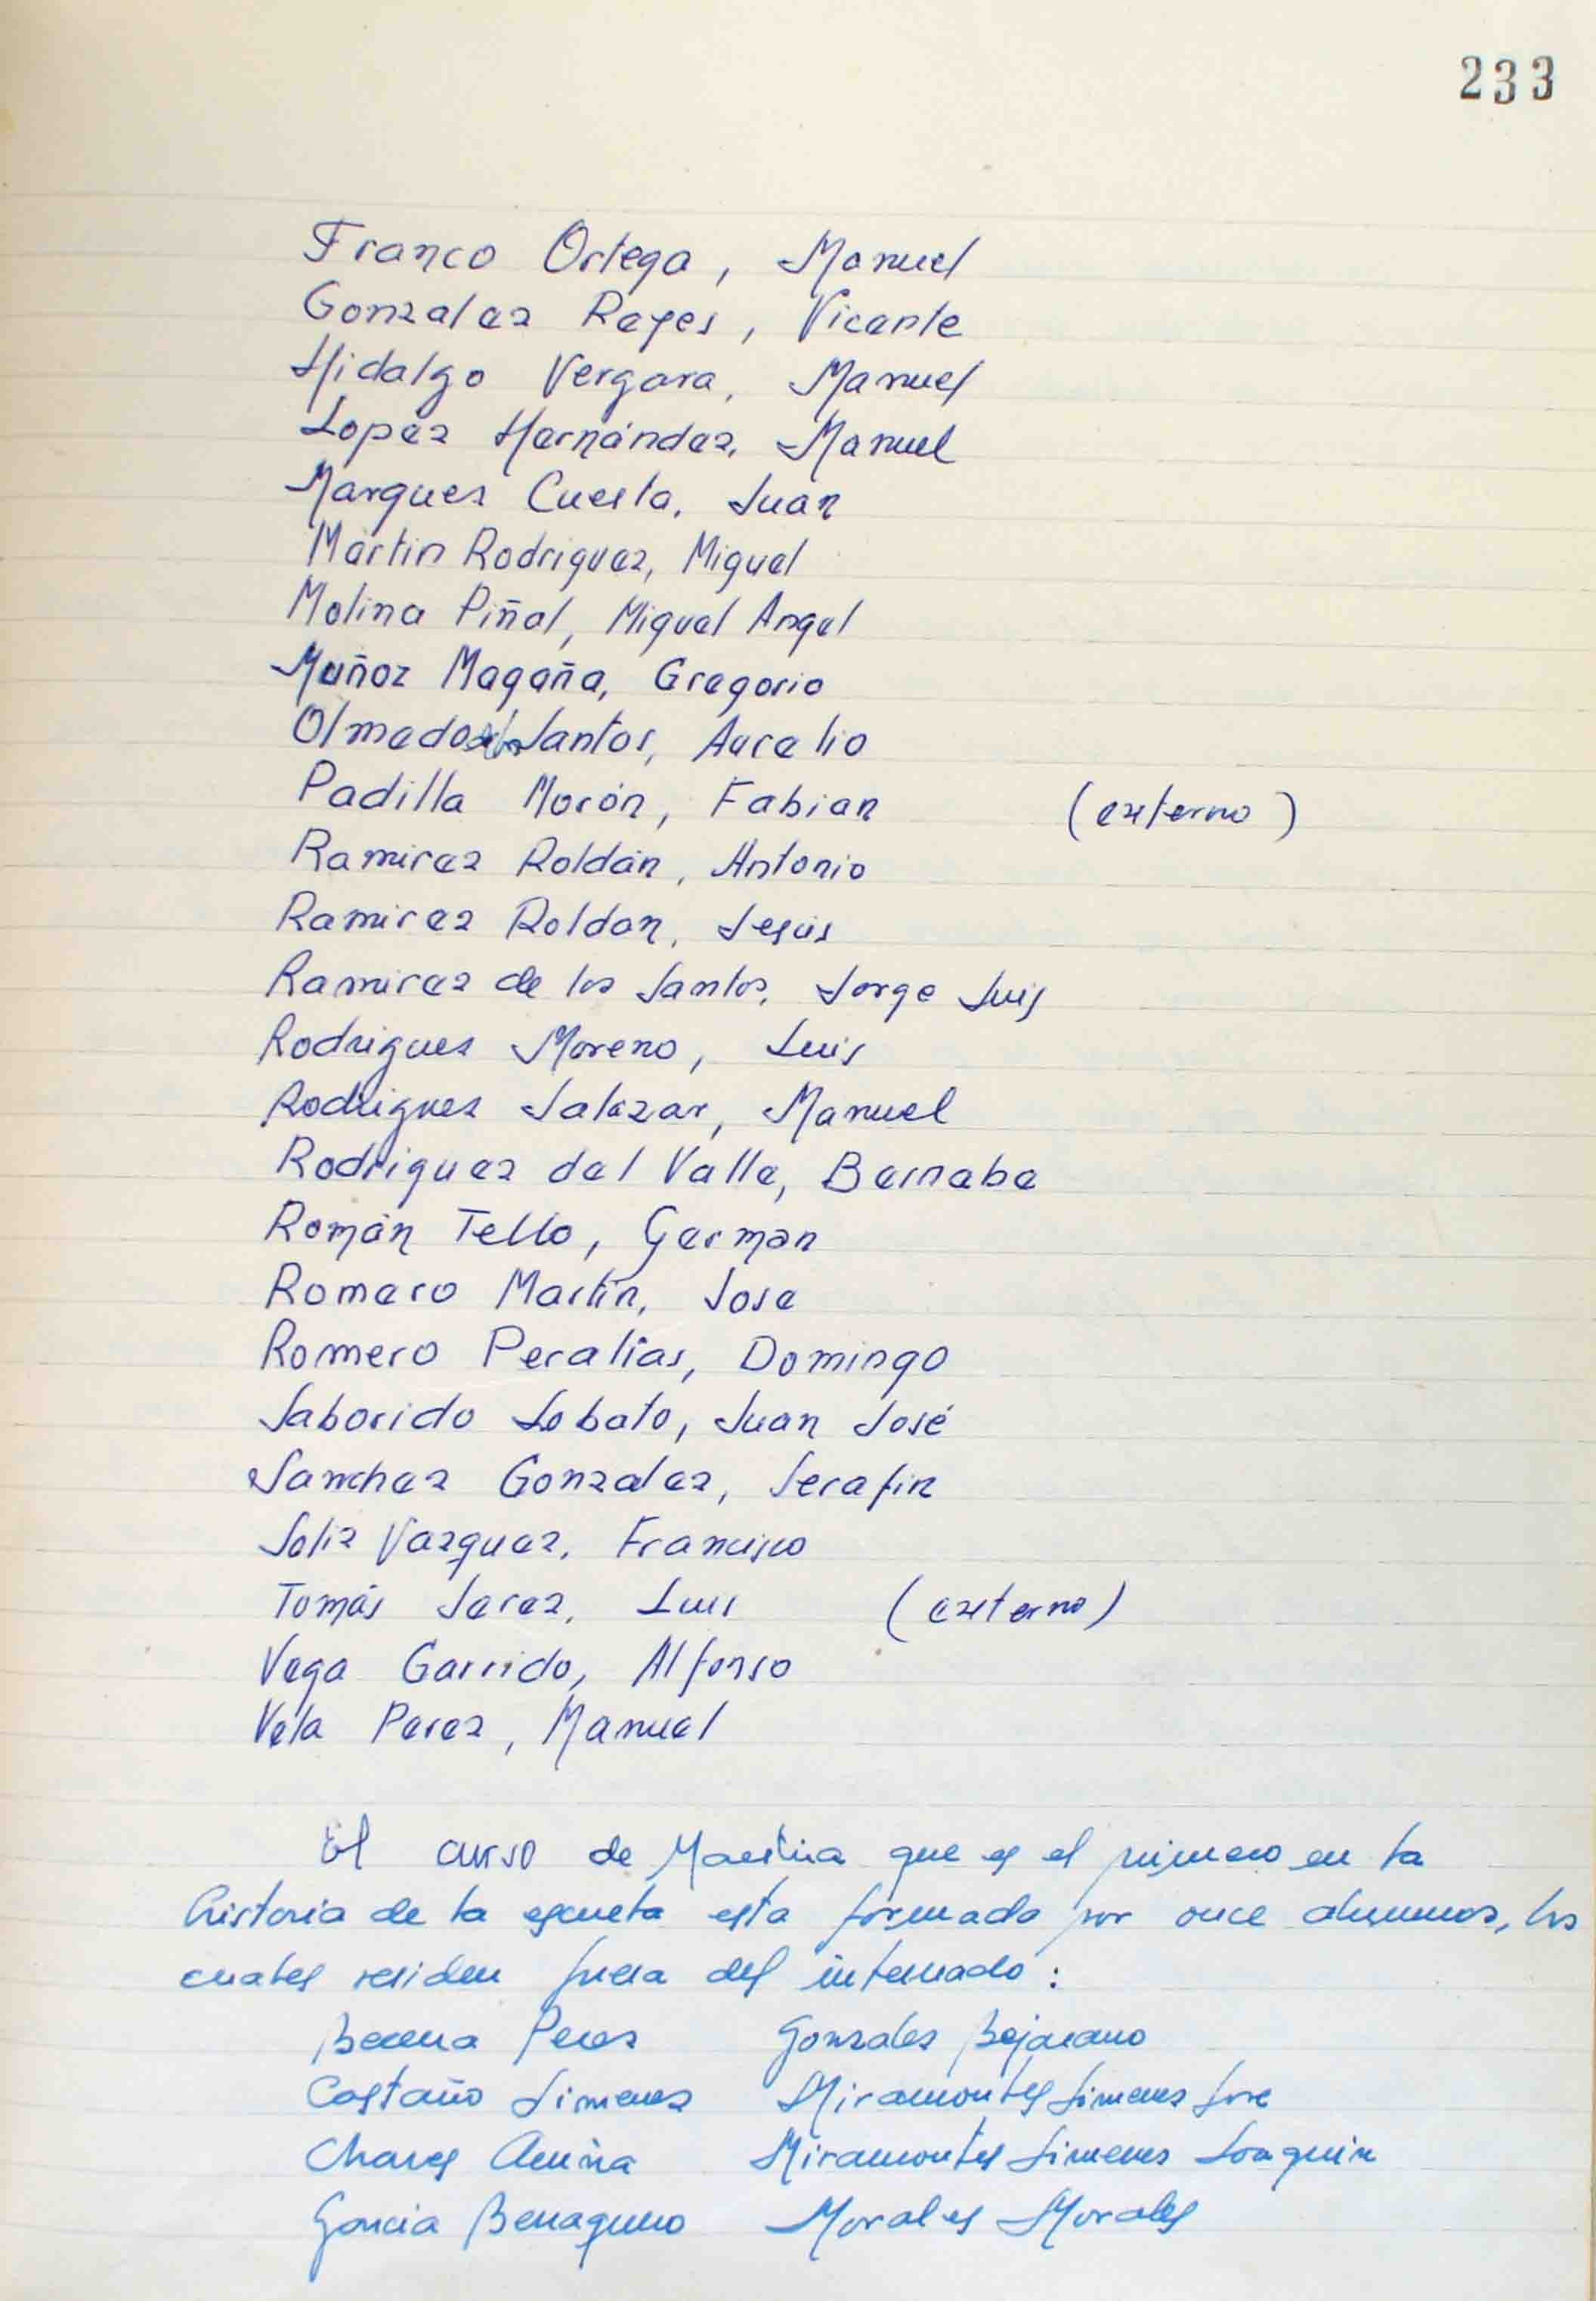 233
Franco Ortega, Manuel
Gonzalez Reyes, Vicente
Hidalgo Vergara, Manuel
Lopez Hernández, Manuel
Marquez Cuesta, Juan
Martin Rodriguez, Miguel
Molina Piñal, Miguel Angel
Muñoz Magaña, Gregorio
Olmedo de los Santos, Aurelio
Padilla Morón, Fabian (externo)
Ramirez Roldán, Antonio
Ramirez Roldan, Jesús
Ramirez de los Santos, Jorge Luis
Rodriguez Moreno, Luis
Rodriguez Salazar, Manuel
Rodriguez del Valle, Bernabe
Román Tello, German
Romero Martín, Jose
Romero Peralías, Domingo
Saborido Lobato, Juan José
Sanchez Gonzalez, Serafin
Soliz Vazquez, Francisco
Tomás Jerez, Luis (externo)
Vega Garrido, Alfonso
Vela Perez, Manuel
El curso de Maestria que es el primero en la
historia de la escuela esta formado por once alumnos, los
cuales residen fuera del internado:
Becerra Perez Gonzalez Bejarano
Castaño Jimenez Miramontes Jimenez Jose
Chaves Miramontes Jimenez Joaquin
Garcia Morales Morales